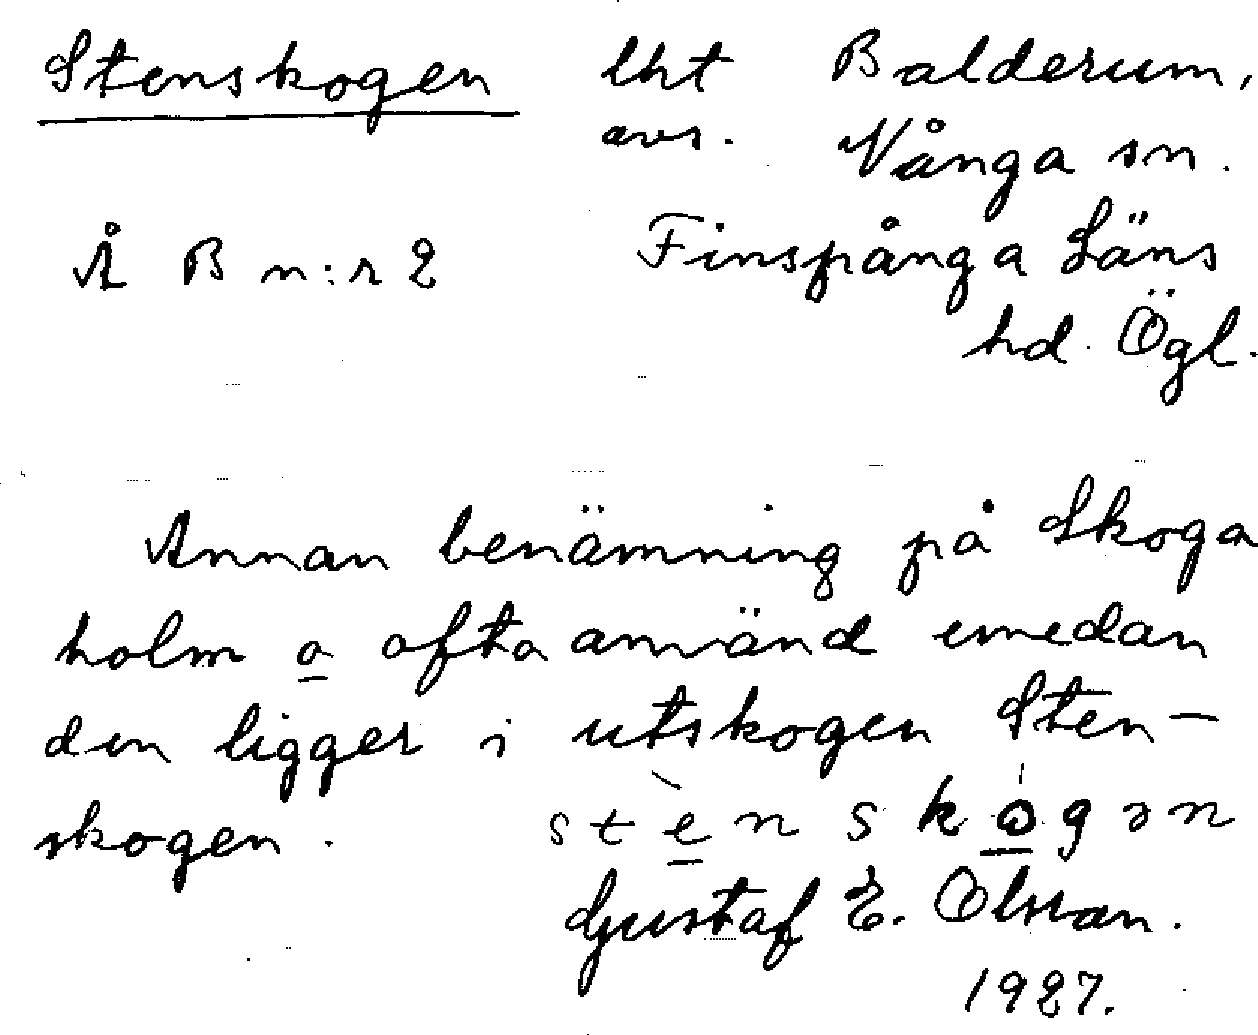 Stenskogen lht Balderum,
avs. Vånga sn.
Å B n:r 2 Finspånga Läns
hd. Ögl.
Annan benämning på Skoga
holm o ofta använd emedan
den ligger i utskogen Sten-
skogen. stènskógən
Gustaf E. Olsson.
1927.